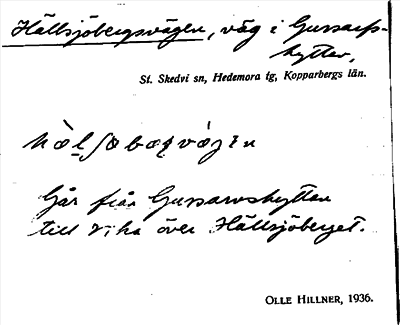 Hällsjöbergsvägen, väg i Gussarfs-
hyttan,
St. Skedvi sn, Hedemora tg, Kopparbergs län.
Går från Gussarvshyttan
till Vika över Hällsjöberget.
OLLE HILLNER, 1936.